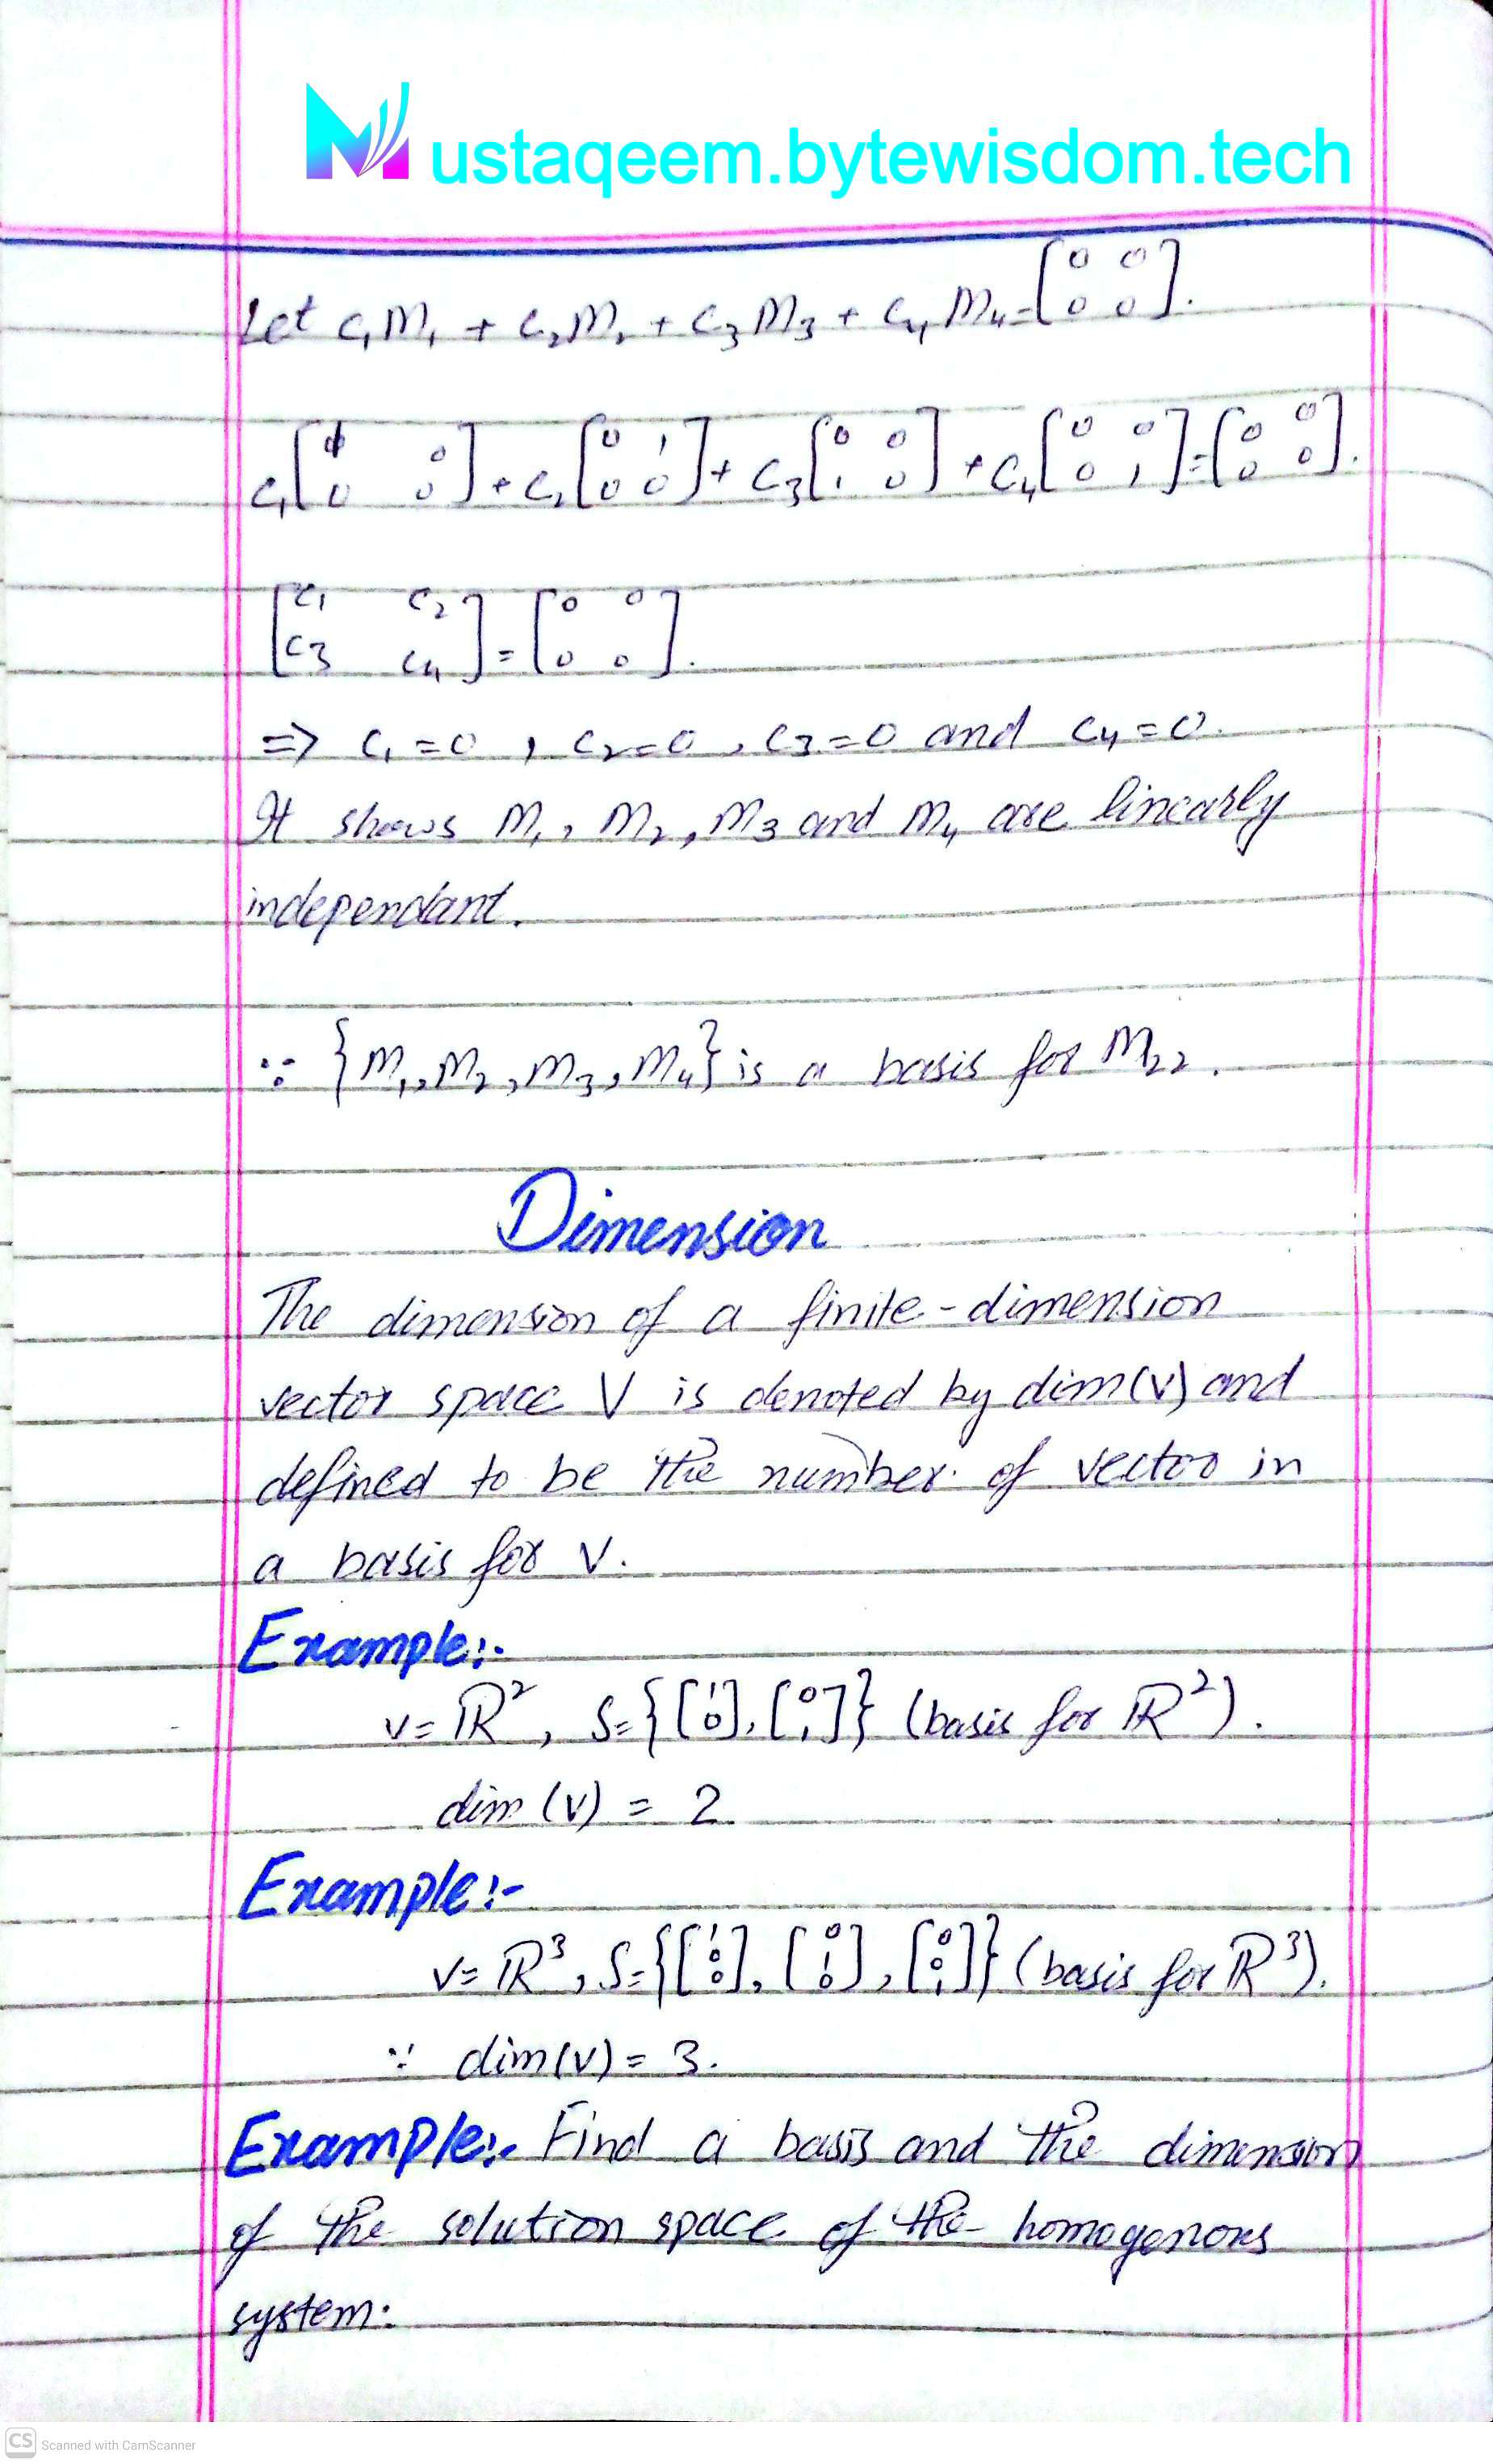 Mustaqeem.bytewisdom.tech
Let c₁M₁ + c₂M₂ + c₃M₃ + c₄M₄ = [0 0; 0 0].
c₁[1 0; 0 0] + c₂[0 1; 0 0] + c₃[0 0; 1 0] + c₄[0 0; 0 1] = [0 0; 0 0].
[c₁ c₂; c₃ c₄] = [0 0; 0 0].
=> c₁=0, c₂=0, c₃=0 and c₄=0.
It shows M₁, M₂, M₃ and M₄ are linearly
independant.
∵ {M₁, M₂, M₃, M₄} is a basis for M₂₂.
Dimension
The dimension of a finite-dimension
vector space V is denoted by dim(V) and
defined to be the number of vector in
a basis for V.
Example:-
V = ℝ², S = {[1; 0], [0; 1]} (basis for ℝ²).
dim (V) = 2
Example:-
V = ℝ³, S = {[1; 0; 0], [0; 1; 0], [0; 0; 1]} (basis for ℝ³).
∵ dim(V) = 3.
Example:- Find a basis and the dimension
of the solution space of the homogenous
system:
CS Scanned with CamScanner